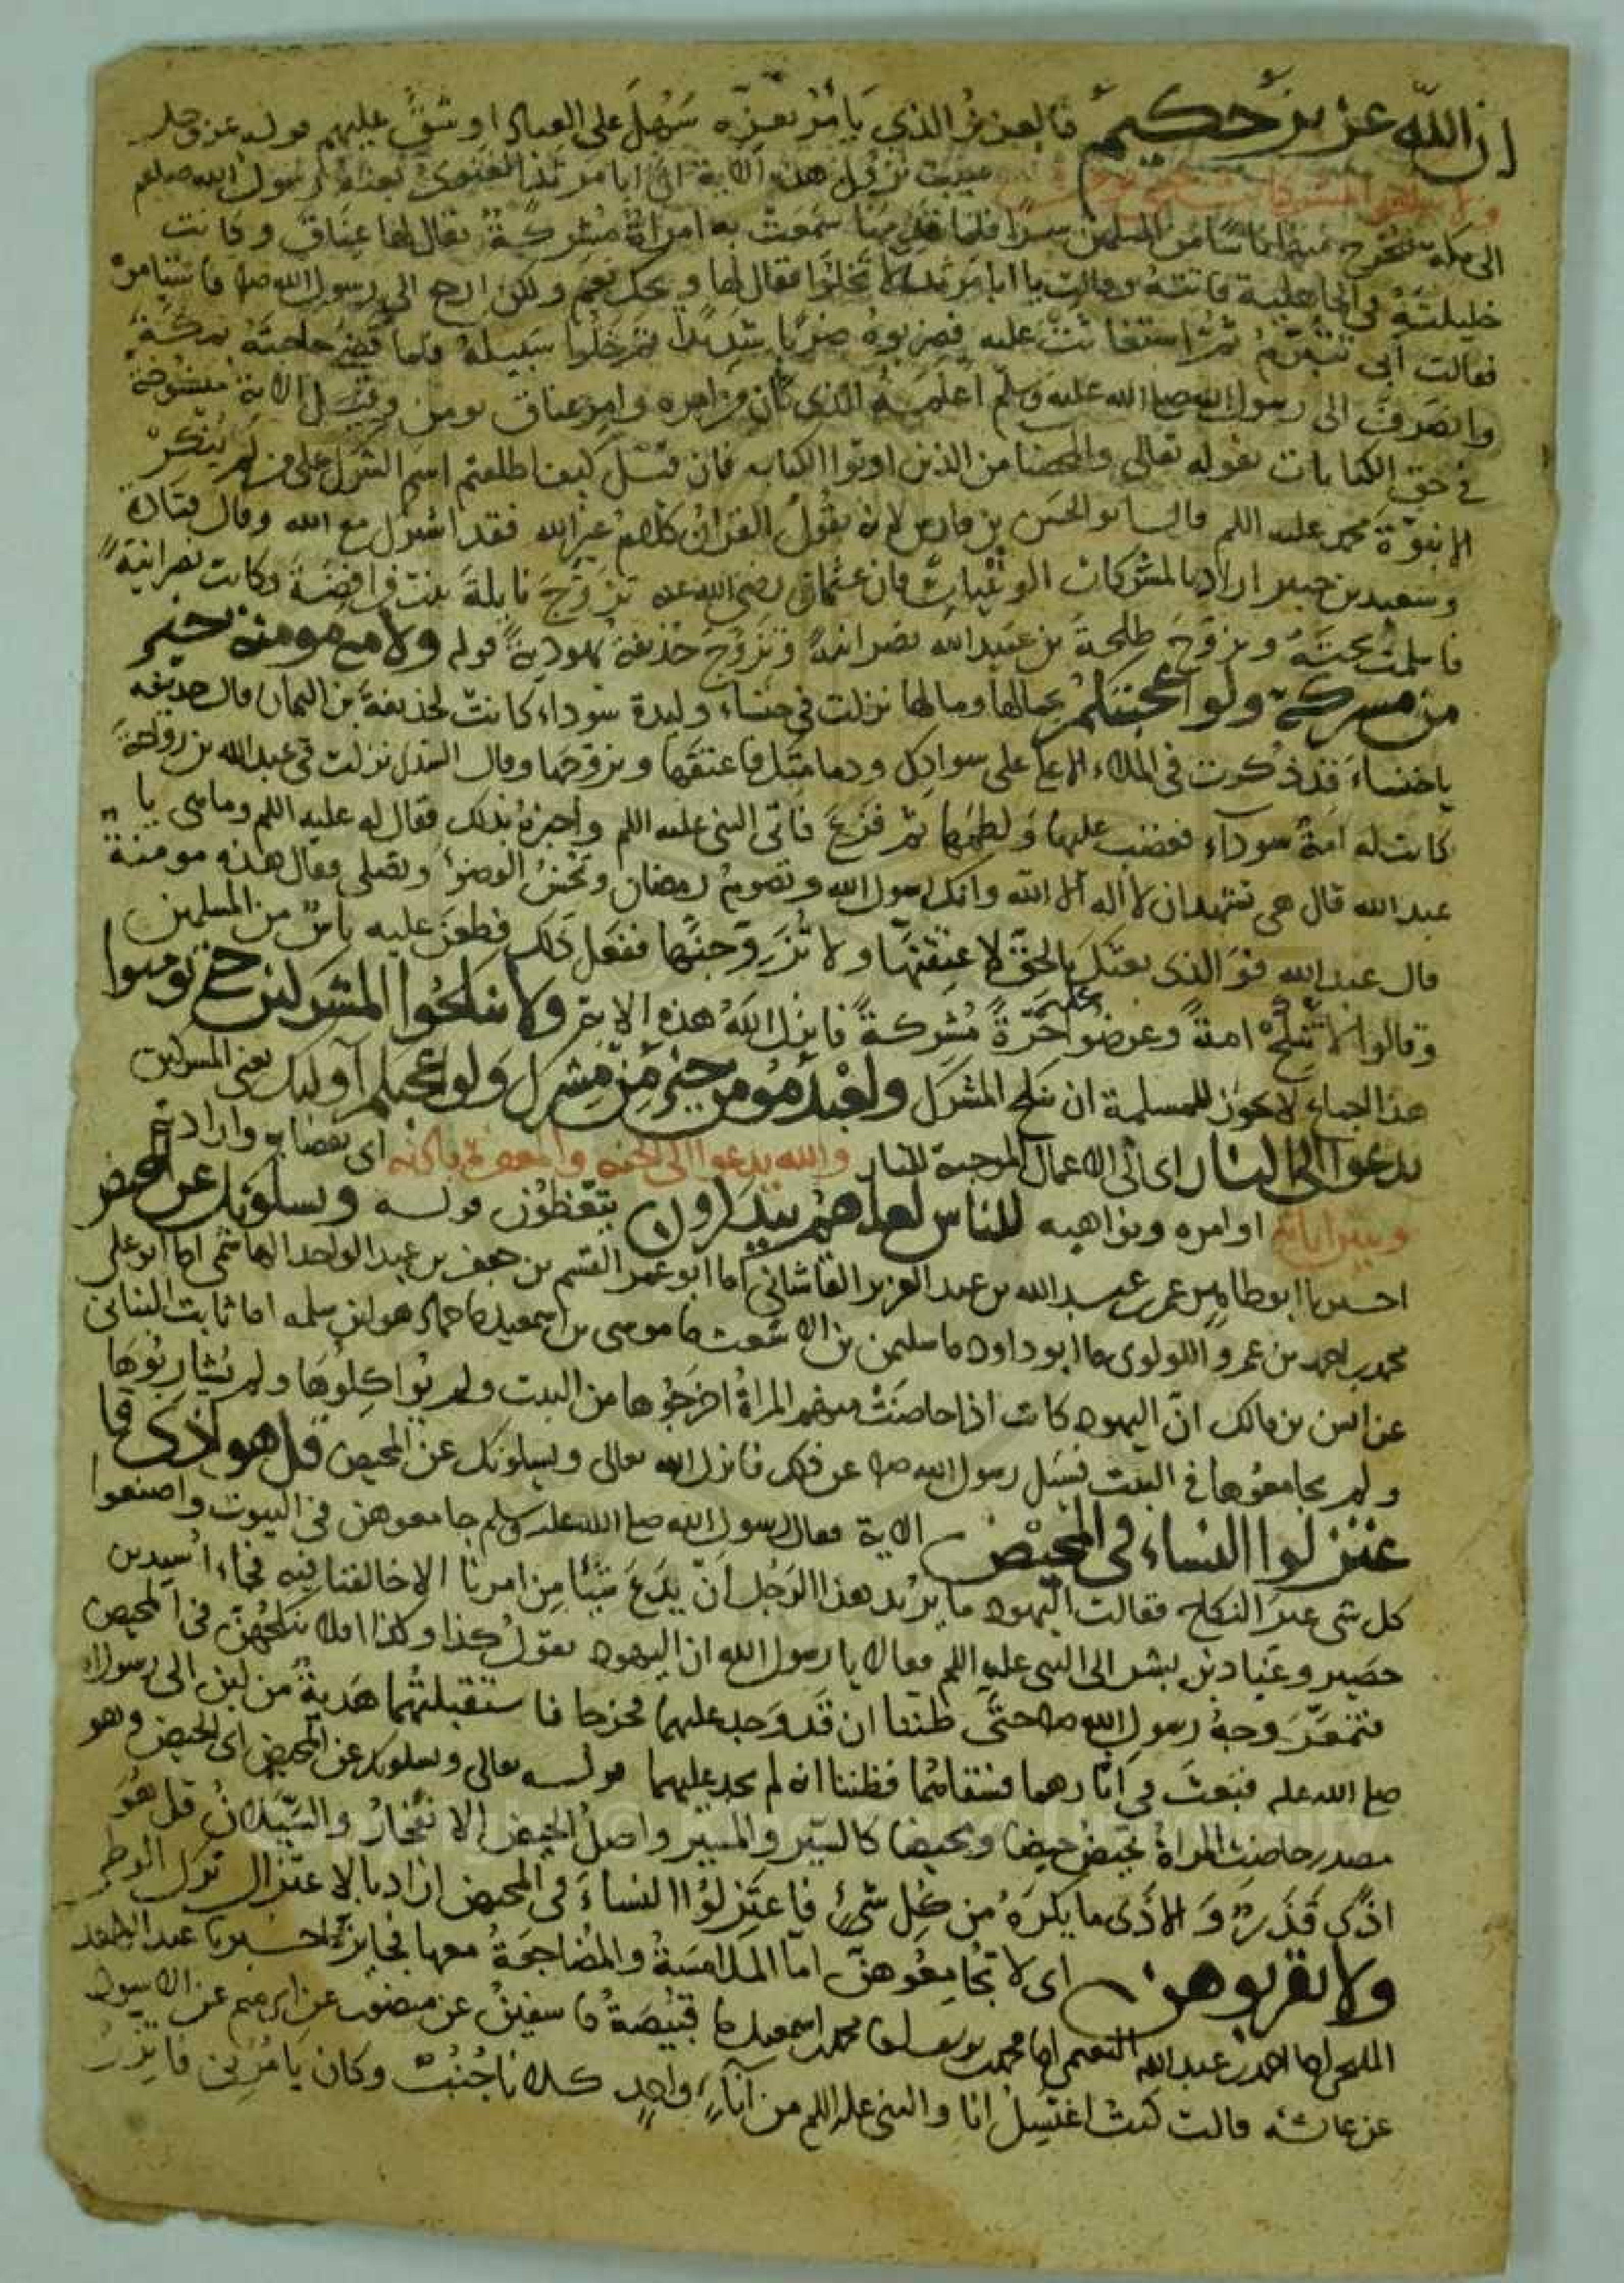 ان الله عزيز حكيم فالعزيز الذي يأمر بعزه سهل على العباد او شق عليهم قوله عز وجل
ولا تنكحوا المشركات حتى يومن سبب نزول هذه الاية ان ابا مرثد الغنوي بعثه رسول الله صلعم
الى مكة ليخرج منها ناسا من المسلمين سرا فلما قدمها سمعت به امراة مشركة يقال لها عناق وكانت
خليلته في الجاهلية فاتته وقالت يا ابا مرثد الا تخلوا فقال لها ويحك نعم ولكن ارجع الى رسول الله صلى فاستامره
فقالت ابي تتبرم ثم استغاثت عليه فضربوه ضربا شديدا ثم خلوا سبيله فلما قضى حاجته بمكة
وانصرف الى رسول الله صلى الله عليه وسلم اعلمه الذي كان من امره وامر عناق وقيل الاية منسوخة
في حق الكتابيات بقوله تعالى والمحصنات من الذين اوتوا الكتاب فان قيل كيف اطلقتم اسم الشرك على من لم ينكر
الا نبوة محمد عليه اللم قال ابو الحسن بن فارس لانه يقول القران كلام غير الله فقد اشرك مع الله وقال قتادة
وسعيد بن جبير اراد بالمشركات الوثنيات فان عثمان رضي الله عنه تزوج نايلة بنت فرافصة وكانت نصرانية
فاسلمت تحته وتزوج طلحة بن عبيد الله نصرانية وتزوج حذيفة يهودية قوله ولامة مومنة خير
من مشركة ولو اعجبتكم بجمالها ومالها نزلت في خنساء وليدة سوداء كانت لحذيفة بن اليمان قال حذيفه
يا خنساء قد ذكرت في الملاء الاعلى على سوادك ودمامتك فاعتقها وتزوجها وقال السدي نزلت في عبد الله بن رواحة
كانت له امة سوداء فغضب عليها ولطمها ثم فزع فاتى النبي عليه اللم واخبره بذلك فقال له عليه اللم وما هي يا
عبد الله قال هي تشهد ان لا اله الا الله وانك رسول الله وتصوم رمضان وتحسن الوضوء وتصلي فقال هذه مومنة
قال عبد الله فو الذي بعثك بالحق لاعتقنها ولاتزوجنها ففعل ذلك فطعن عليه ناس من المسلمين
وقالوا تنكح امة وعرضوا عليه حرة مشركة فانزل الله هذه الاية ولا تنكحوا المشركين حتى يومنوا
هذا اجماع لا يجوز للمسلمة ان تنكح المشرك ولعبد مومن خير من مشرك ولو اعجبكم اوليك يعني المشركين
يدعوا الى النار اي الى الاعمال الموجبة للنار والله يدعوا الى الجنه والمغفرة باذنه اي بقضايه وارادته
ويبين اياته اوامره ونواهيه للناس لعلهم يتذكرون يتعظون قوله ويسلونك عن المحيض
اخبرنا ابو طاهر عمر بن عبد العزيز القاشاني انا ابو عمر القسم بن جعفر بن عبد الواحد الهاشمي انا ابو علي
محمد بن احمد بن عمرو اللولوي نا ابو داود نا سليمن بن الاشعث نا موسى بن اسمعيل نا حماد هو ابن سلمه انا ثابت البناني
عن انس بن مالك ان اليهود كانت اذا حاضت منهم المراة اخرجوها من البيت ولم يواكلوها ولم يشاربوها
ولم يجامعوها في البيت فسيل رسول الله صلى عن ذلك فانزل الله تعالى ويسلونك عن المحيض قل هو اذى فا
عتزلوا النساء في المحيض الاية فقال رسول الله صلى الله عليه وسلم جامعوهن في البيوت واصنعوا
كل شي غير النكاح فقالت اليهود ما يريد هذا الرجل ان يدع شيا من امرنا الا خالفنا فيه فجاء اسيد بن
حضير وعباد بن بشر الى النبي عليه اللم فقالا يا رسول الله ان اليهود تقول كذا وكذا افلا ننكحهن في المحيض
فتمعر وجه رسول الله صلى حتى ظننا ان قد وجد عليهما فخرجا فاستقبلتهما هدية من لبن الى رسول الله
صلى الله عليه فبعث في اثارهما فسقاهما فظننا انه لم يجد عليهما قوله تعالى ويسلونك عن المحيض اي الحيض وهو
مصدر حاضت المراة تحيض حيضا ومحيضا كالسير والمسير واصل الحيض الانفجار والسيلان قل هو
اذى قذر والاذى ما يكره من كل شيء فاعتزلوا النساء في المحيض اراد بالاعتزال ترك الوطي
ولا تقربوهن اي لا تجامعوهن اما الملامسة والمضاجعة معها فجايزة اخبرنا عبد الواحد
المليحي انا احمد بن عبد الله النعيمي انا محمد بن يوسف نا محمد بن اسمعيل نا قبيصة نا سفين عن منصور عن ابرهيم عن الاسود
عن عائشه قالت كنت اغتسل انا والنبي عليه اللم من اناء واحد كلانا جنب وكان يامرني فاتزر
Copyright © King Saud University